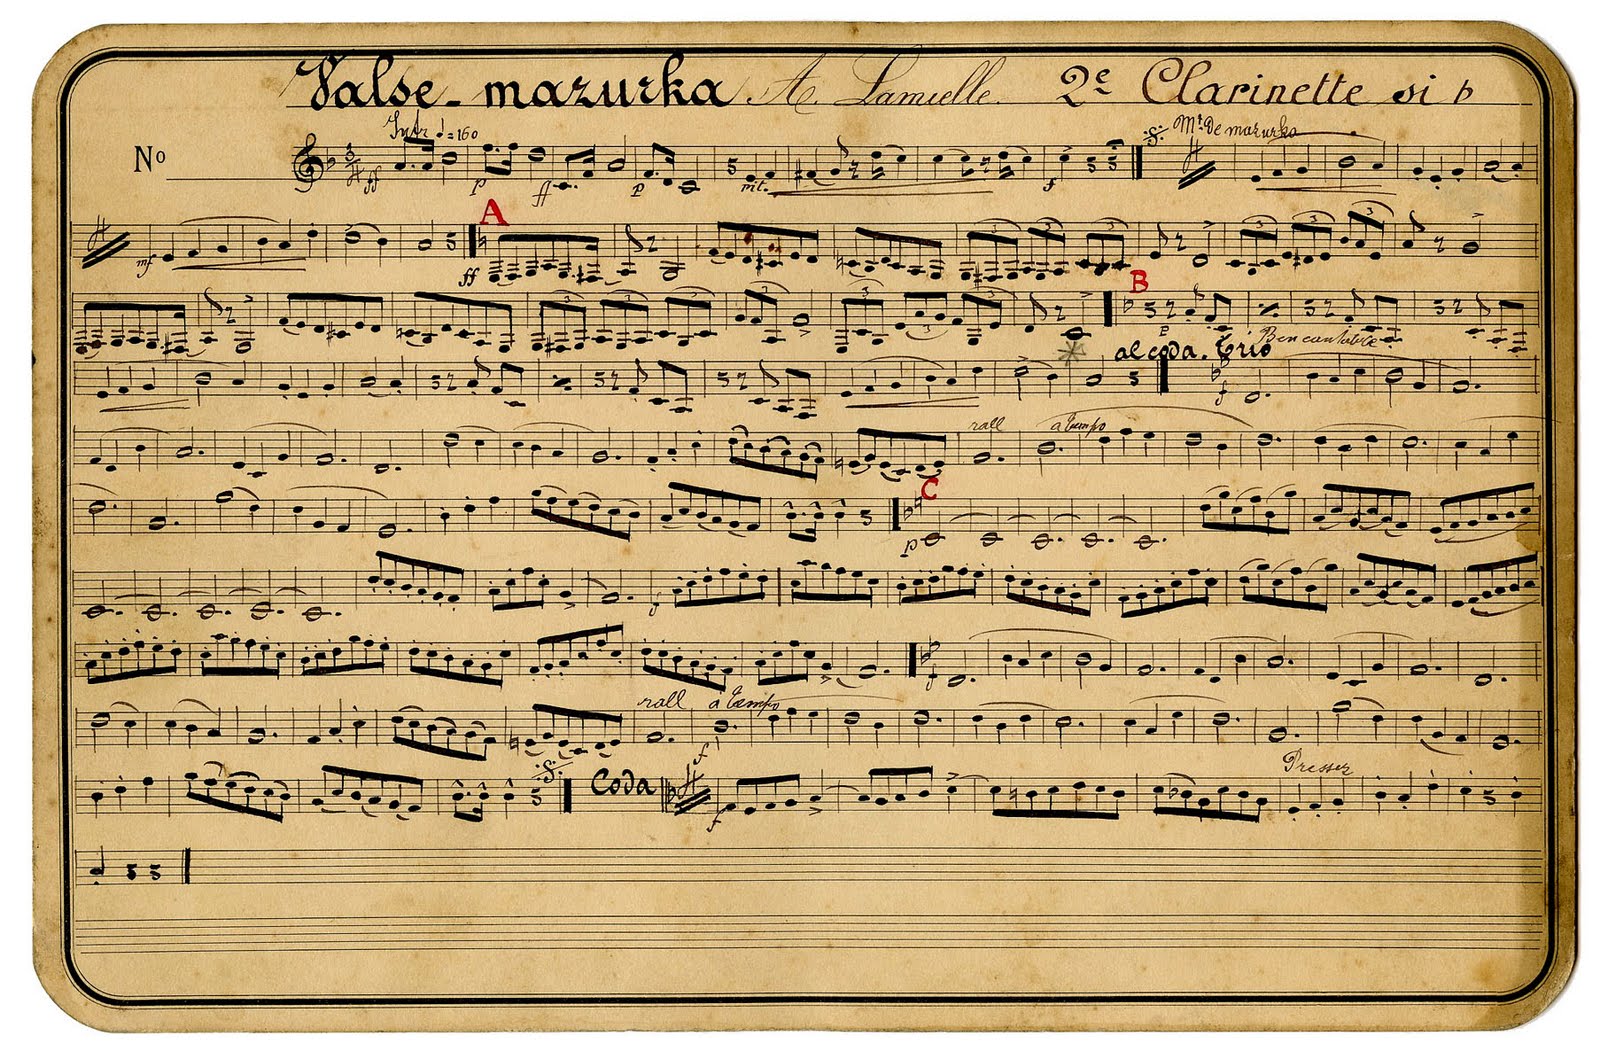 Valse-mazurka A. Lamielle. 2e Clarinette si b
Intr. ♩=160 Mt. De mazurka
No
ff p ff p mf. f
A
mf ff
B
p Ben cantabile
al coda. Trio
f
rall a tempo
C
p
f
f
rall a tempo
f
Coda Presser
f